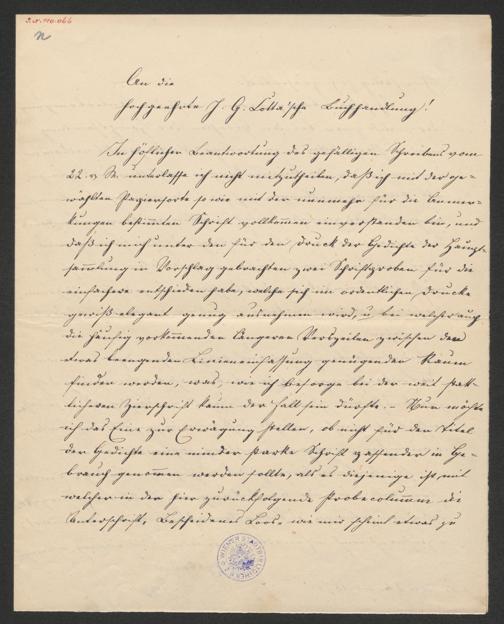 An die
hochgeehrte J. G. Cotta'sche Buchhandlung!
In höflicher Beantwortung des gefälligen Schreibens vom
22. v. M. unterlasse ich nicht mitzutheilen, daß ich mit der ge-
wählten Papiersorte so wie mit der nunmehr für die Anmer-
kungen bestimmten Schrift vollkommen einverstanden bin, und
daß ich mich unter den für den Druck der Gedichte der Haupt-
sammlung in Vorschlag gebrachten zwei Schriftproben für die
einfachere entschieden habe, welche sich im ordentlichen Drucke
gewiß elegant genug ausnehmen wird, u. bei welcher auch
die häufig vorkommenden längeren Verszeilen zwischen der
etwas beengenden Linieneinfassung genügenden Raum
finden werden, was, wie ich besorge bei der weit statt-
licheren Zierschrift kaum der Fall sein dürfte. – Nun möchte
ich das Eine zur Erwägung stellen, ob nicht für den Titel
der Gedichte eine minder starke Schrift passender in Ge-
brauch genommen werden sollte, als es diejenige ist, mit
welcher in der hier zurückfolgenden Probecolumne die
Unterschrift, Bescheidenes Loos, wie mir scheint etwas zu